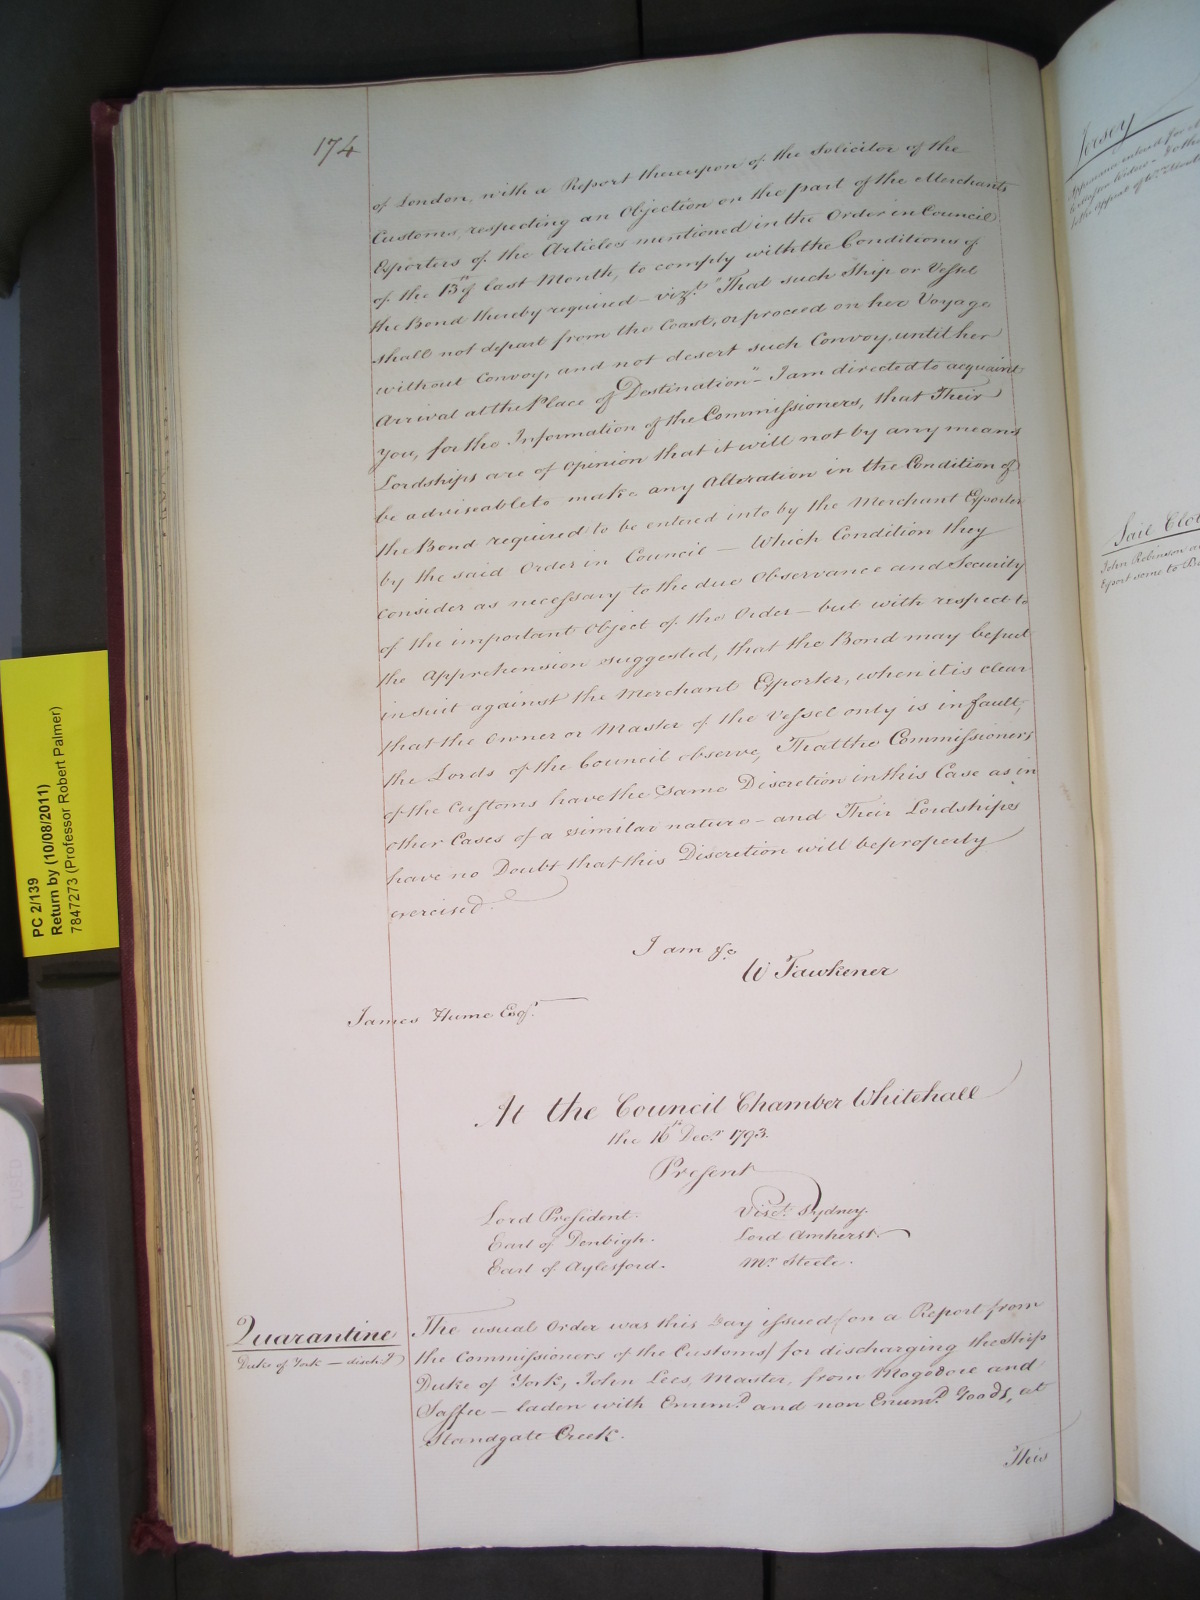 174
of London, with a Report thereupon of the Solicitor of the
Customs, respecting an Objection on the part of the Merchants
Exporters of the Articles mentioned in the Order in Council
of the 13th of last Month, to comply with the Conditions of
the Bond thereby required – vizt. "That such Ship or Vessel
shall not depart from the Coast, or proceed on her Voyage
without Convoy, and not desert such Convoy, until her
Arrival at the Place of Destination" – I am directed to acquaint
You, for the Information of the Commissioners, that Their
Lordships are of opinion that it will not by any means
be adviseable to make any Alteration in the Condition of
the Bond required to be entered into by the Merchant Exporter
by the said Order in Council — Which Condition they
consider as necessary to the due Observance and Security
of the important Object of the Order – but with respect to
the Apprehension suggested, that the Bond may be put
in suit against the Merchant Exporter, when it is clear
that the Owner or Master of the Vessel only is in fault,
the Lords of the Council observe, That the Commissioners
of the Customs have the same Discretion in this Case as in
other Cases of a similar nature – and Their Lordships
have no Doubt that this Discretion will be properly
exercised.
I am &c.
W Fawkener
James Hume Esqr.
At the Council Chamber Whitehall
the 16th Decr. 1793.
Present
Lord President. Visct. Sydney.
Earl of Denbigh. Lord Amherst.
Earl of Aylesford. Mr. Steele.
Quarantine
Duke of York — dischd.
The usual Order was this Day issued (on a Report from
the Commissioners of the Customs) for discharging the Ship
Duke of York, John Lees, Master, from Mogodore and
Saffee – laden with Enumd. and non Enumd. Goods, at
Standgate Creek.
This
Jersey
Sail Clo
John Robinson
Export some to
PC 2/139
Return by (10/08/2011)
7847273 (Professor Robert Palmer)